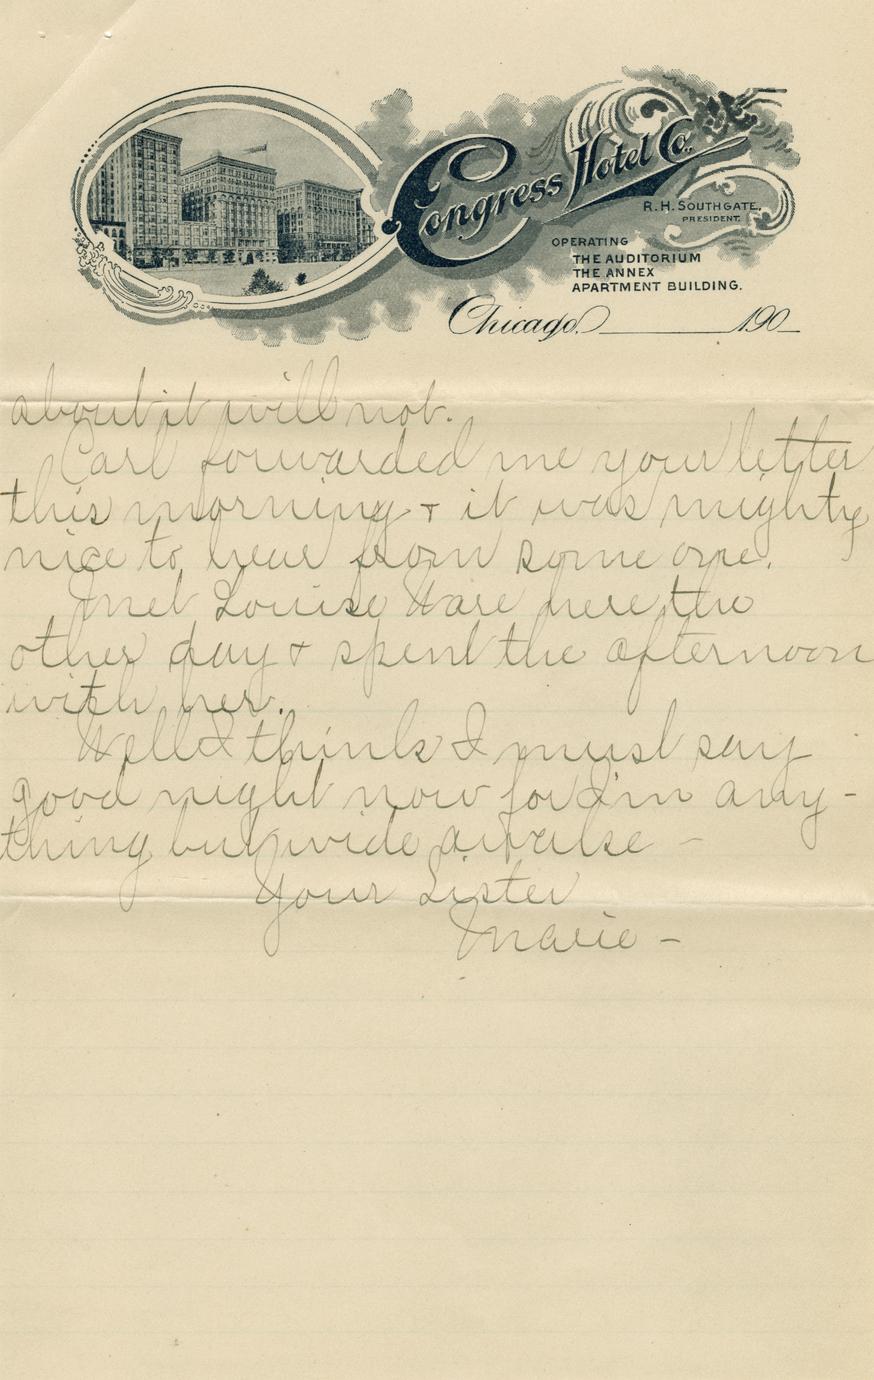 Congress Hotel Co.
R. H. SOUTHGATE,
PRESIDENT.
OPERATING
THE AUDITORIUM
THE ANNEX
APARTMENT BUILDING.
Chicago, 190
about it will not.
Carl forwarded me your letter
this morning & it was mighty
nice to hear from some one.
I met Louise Ware here the
other day & spent the afternoon
with her.
Well I think I must say
good night now for I'm any-
thing but wide awake -
Your Sister
Marie -